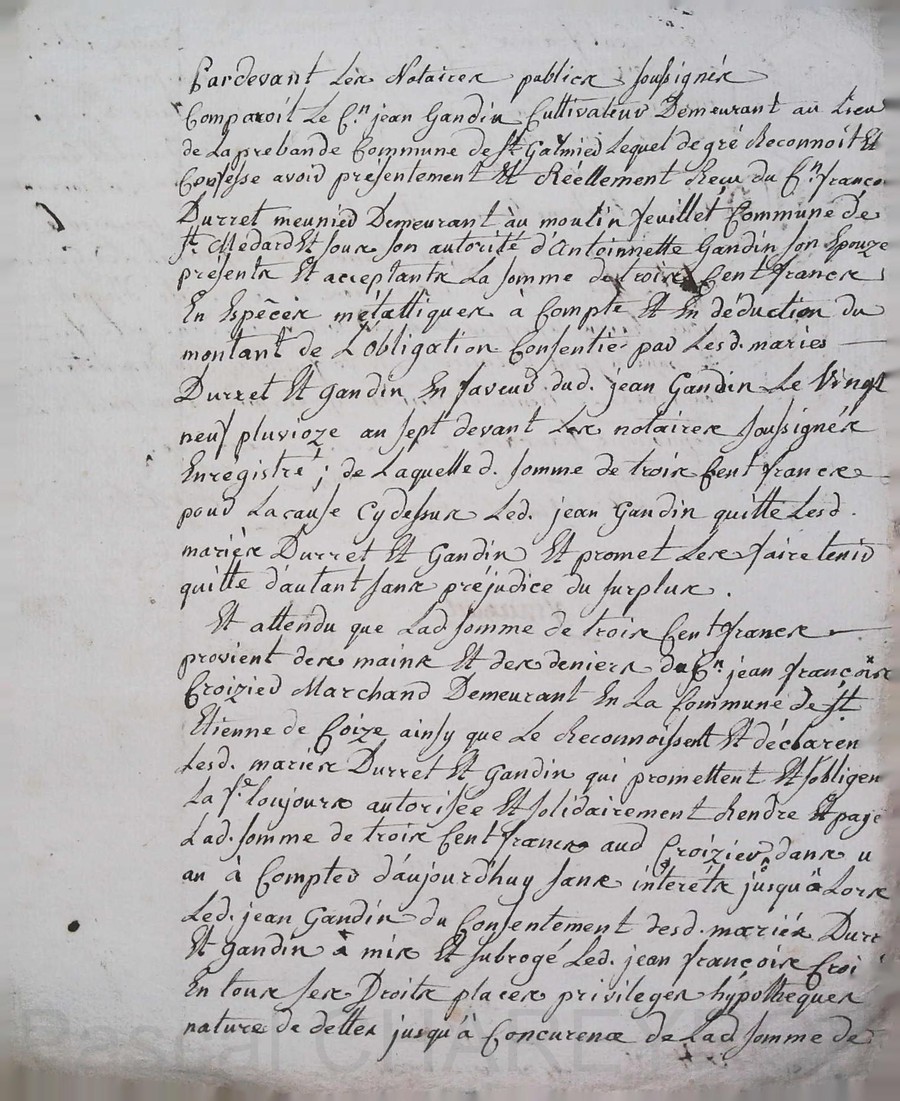 Pardevant Les Notaires publics soussignés
Comparoit Le C.n jean Gandin Cultivateur Demeurant au Lieu
de La prebande Commune de St Galmier Lequel de gré Reconnoit Et
Confesse avoir présentement Et Réellement Reçu du C.n françois
Durret meunier Demeurant au moulin feuillet Commune de
St Médard Et sous son autorité d'Antoinnette Gandin son Epouze
présents Et acceptants La somme de trois Cent francs
En Espêces métalliques à Compte Et En déduction du
montant de L'obligation Consentie par Lesd. mariés
Durret Et gandin En faveur dud. jean Gandin Le Vingt
neuf pluvioze an sept devant Les notaires soussignés
Enregistré ; de Laquelle d. somme de trois Cent francs
pour La cause Cydessus Led. jean Gandin quitte Lesd.
mariés Durret Et Gandin Et promet Les faire tenir
quitte d'autant sans préjudice du surplus.
Et attendu que Lad somme de trois Cent francs
provient des mains Et des deniers du C.n jean françois
Croizier Marchand Demeurant En La Commune de St
Etienne de Coize ainsy que Le Reconnoissent Et déclaren
Lesd. mariés Durret Et Gandin qui promettent Et sobligen
La f.e toujours autorisée Et solidairement Rendre Et paye
Lad. somme de trois Cent francs aud Croizier dans u
an à Compter d'aujourd'huy sans interéts jusqu'à Lors
Led. jean Gandin du Consentement desd. mariés Durr
Et gandin à mis Et subrogé Led. jean françois Croi
En tous ses Droits places privileges hypotheques
nature de dettes jusqu'à Concurence de Lad somme de